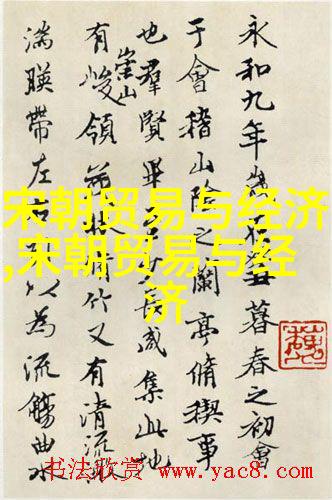 永和九年丑暮春之初會
于會稽山陰之蘭亭脩稧事
也羣賢畢咸集此地
有崇山峻領竹又有清流激
湍暎帶左右以為流觴曲水
宋朝贸易与经济
,宋朝贸易与经
济
书法欣赏 www.yac8.com